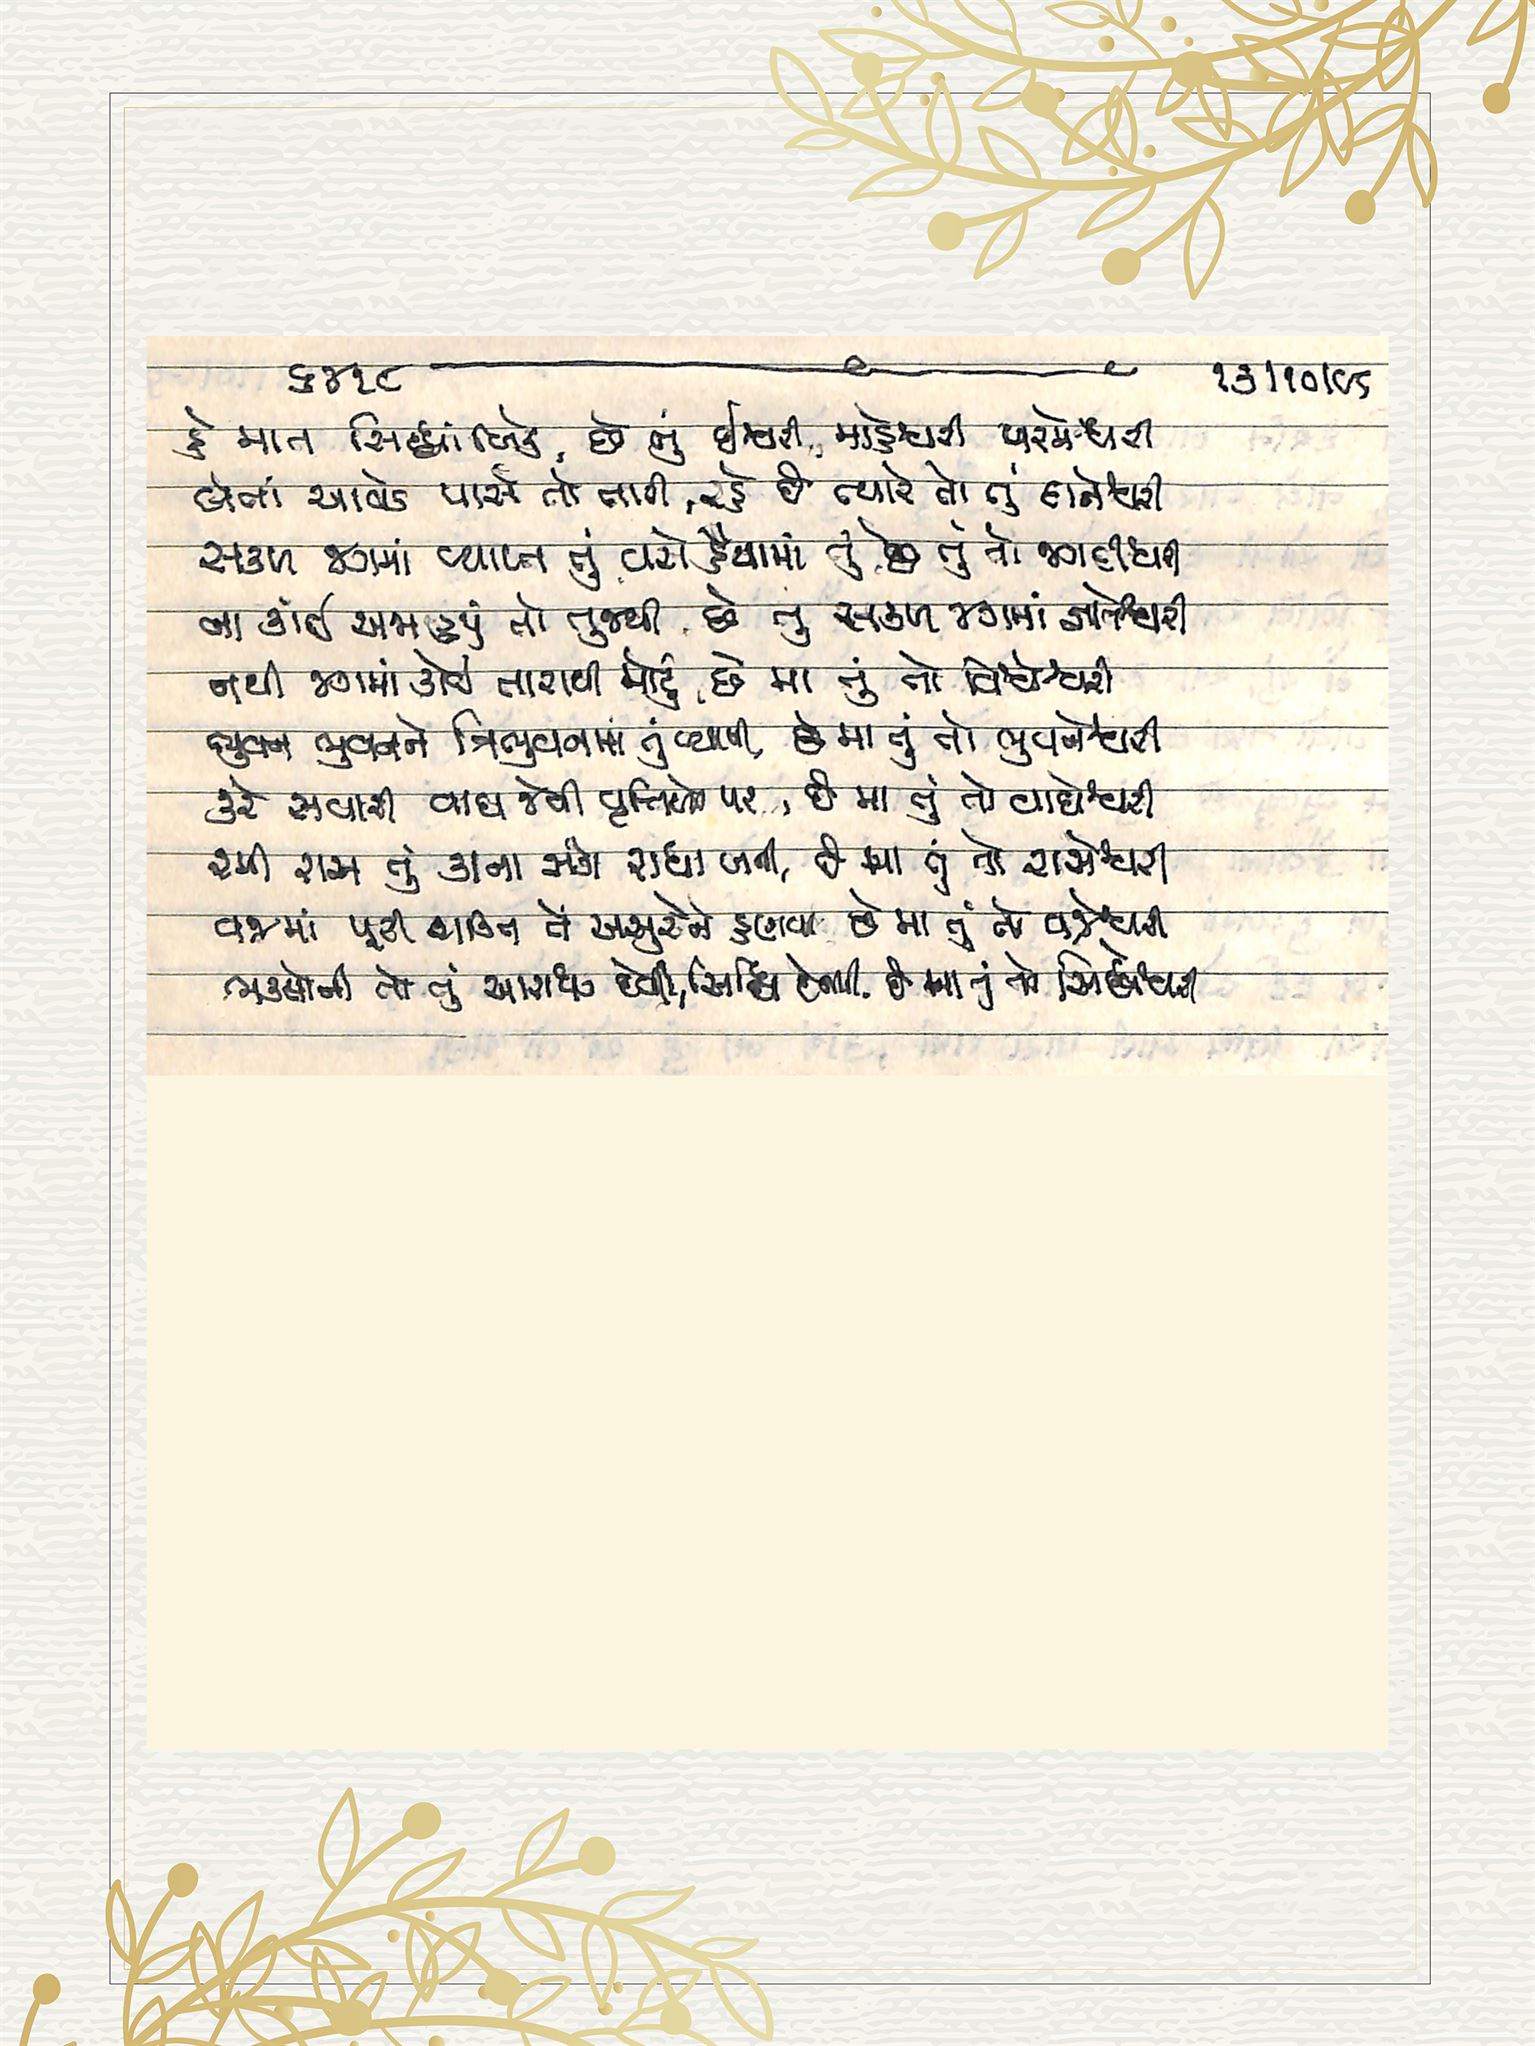 ૬૪૧૮ ૧૩/૧૦/૮૬
હે માત સિધ્ધાંબિકે, છે તું ઈશ્વરી, માહેશ્વરી પરમેશ્વરી
બેનાં આવેક પાસે તો તારી, રહે છે ત્યારે તો તું દાનેશ્વરી
સકળ જગમાં વ્યાપ્ત તું વસે હૈયામાં તું, છે તું તો જગદીશ્વરી
ના કાંઈ અજાણ્યું તો તુજથી, છે તું સકળ જગમાં જ્ઞાનેશ્વરી
નથી જગમાં કોઈ તારાથી મોટું, છે મા તું તો વિશ્વેશ્વરી
ભુવન ભુવનને ત્રિભુવનમાં તું વ્યાપી, છે મા તું તો ભુવનેશ્વરી
કરે સવારી વાઘ જેવી વૃત્તિઓ પર, છે મા તું તો વાઘેશ્વરી
રમી રાસ તું કાના સંગે રાધા બની, છે મા તું તો રાસેશ્વરી
વજ્રમાં પૂરી શક્તિ તેં અસુરોને હણવા છે મા તું તો વજ્રેશ્વરી
ભક્તોની તો તું આરાધ્ય દેવી, સિધ્ધિ દેનારી, છે મા તું તો સિધ્ધેશ્વરી